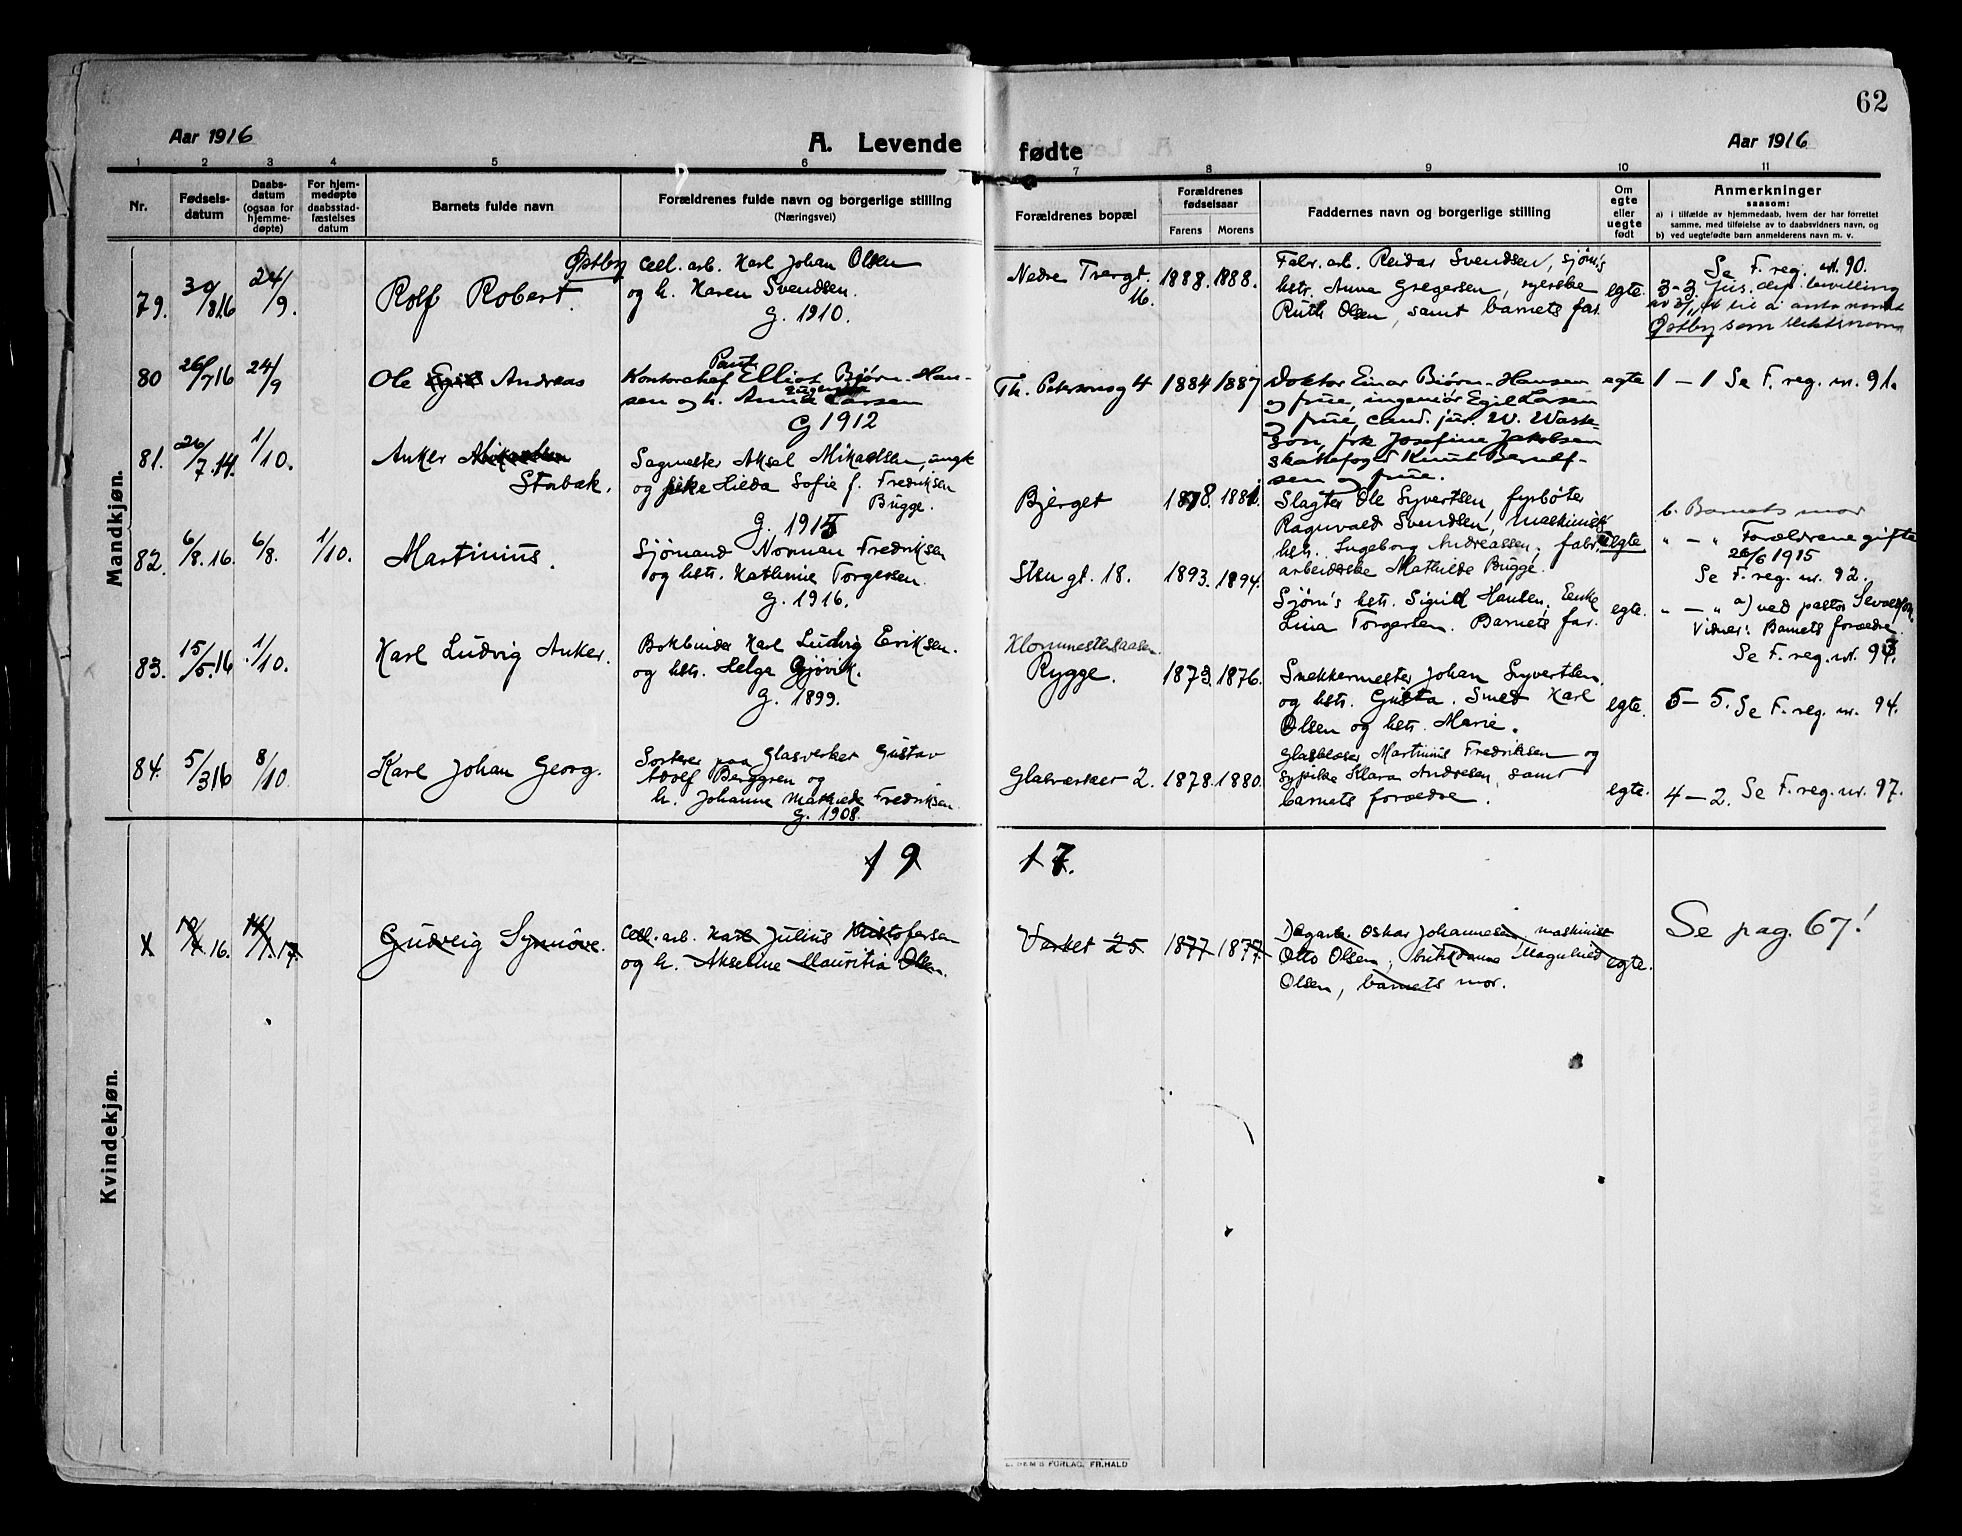 62
Aar 1916
A. Levende
fødte
Aar 1916
1 2 3 4 5 6 7 8 9 10 11
Nr.
Fødsels-
datum
Daabs-
datum
(ogsaa for
hjemme-
døpte)
For hjem-
medøpte
daabsstad-
fæstelses
datum
Barnets fulde navn
Forældrenes fulde navn og borgerlige stilling
(Næringsvei)
Forældrenes bopæl
Forældrenes
fødselsaar
Farens Morens
Faddernes navn og borgerlige stilling
Om
egte
eller
uegte
født
Anmerkninger
saasom:
a) i tilfælde av hjemmedaab, hvem der har forrettet
samme, med tilføielse av to daabsvidners navn, og
b) ved uegtefødte barn anmelderens navn m. v.
Mandkjøn.
79. 30/8 16 24/9.
Rolf Robert. Østby
Cell. arb. Karl Johan Olsen
og h. Karen Svendsen.
G. 1910.
Nedre Tvergt
16.
1888. 1888.
Fabr. arb. Reidar Svendsen, sjøm's
hstr. Anna Gregersen, syerske
Ruth Olsen, samt barnets far.
egte.
Se F. reg. nr. 90.
3-3 Jus. dep. bevilling
til å anta navnet
Østby som slektsnavn
80 26/7 16 24/9
Ole Egil Andreas
Paul
Kontorchef Elliot Bjørn-Han-
sen og h. Larsen
G 1912
Th. Petersonsg 4
1884 1887
Doktor Einar Bjørn-Hansen
og frue, ingeniør Egil Larsen
og frue, cand. jur. W.
frk Josefine Jakobsen
skattefoged Knut
sen og frue.
egte
1 - 1 Se F. reg. nr. 91.
81. 26/7. 14. 1/10.
Anker Mikaelsen
Storbak.
Sagmester Aksel Mikaelsen, ungk
og pike Hilda Sofie f. Fredriksen
Bugge.
G. 1915
Bjerget
1878. 1881.
Slagter Ole Syvertsen, fyrbøter
Ragnvald Svendsen, maskinist
hstr. Ingeborg Andreassen, fabr.
arbeiderske Mathilde Bugge.
uegte
b. Barnets mor
" - " Forældrene gifte
26/6 1915
Se F. reg. nr. 92.
82. 6/8. 16. 6/8. 1/10.
Martinius.
Sjømand Norman Fredriksen
og hstr. Kathrine Torgersen.
G. 1916.
Stengt. 18.
1893. 1894.
Sjøm's hstr. Sigrid Hansen, Enke
Lina Torgersen. Barnets far.
egte.
" - " a) ved pastor
Vidner: Barnets forældre.
Se F. reg. nr. 93
83. 15/5. 16 1/10.
Karl Ludvig Anker.
Bokbinder Karl Ludvig Eriksen.
og hstr. Helga Gjøvik.
G. 1899.
Rygge.
1873. 1876.
Snekkermester Johan Syvertsen
og hstr. Gusta. Smed Karl
Olsen og hstr. Marie.
egte.
5 - 5. Se F. reg. nr. 94.
84. 5/3 16 8/10
Karl Johan Georg.
Sorterer paa Glasverket Gustav
Adolf Berggren og
h. Johanne Mathilde Fredriksen
G. 1908.
Glasværket 2.
1878. 1880.
Glasblæser Martinius Fredriksen og
sypike Klara Andresen, samt
barnets forældre.
egte.
4 - 2. Se F. reg. nr. 97.
19 17.
Kvindekjøn.
X
Gudveig Synnöve.
Cell. arb. Karl Julius Kristofersen
og h. Akseline Mauritia Olsen.
Værket 25
1877 1877
Dagarb. Oskar Johannesen, maskinist
Otto Olsen, butikdame Magnhild
Olsen, barnets mor.
egte.
Se pag. 67!
FORLAG, FR.HALD